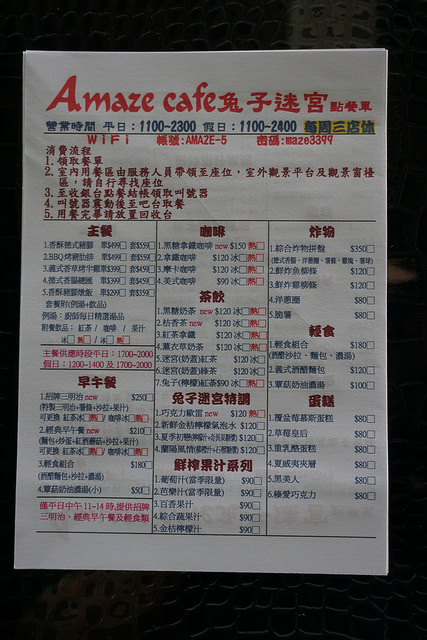 Amaze cafe兔子迷宮 點餐單
營業時間 平日：1100~2300 假日：1100~2400 每周三店休
WiFi 帳號:AMAZE-5 密碼:maze3399
消費流程
1. 領取餐單
2. 室內用餐區由服務人員帶領至座位，室外觀景平台及觀景窗檯
區，請自行尋找座位
3. 至收銀台點餐結帳領取叫號器
4. 叫號器震動後至吧台取餐
5. 用餐完畢請放置回收台
主餐
1.香酥德式豬腳 單$499 套$559
2.BBQ烤豬肋排 單$499 套$559
3.義式香草烤牛雞 單$399 套$459
4.德式香腸總匯 單$399 套$459
5.香酥豬腳燉飯 單$299 套$359
套餐附(例湯+飲品)
例湯：廚師每日精選湯品
附餐飲品：紅茶 / 咖啡 / 果汁
冰 熱 / 冰 熱
主餐供應時段平日：1700~2000
假日：1200~1400 及 1700~2000
早午餐
1.招牌三明治 new $250
(特製三明治+薯條+沙拉+果汁)
可更換 紅茶冰 熱 咖啡冰 熱
2.經典早午餐 new $210
可更換 紅茶冰 熱 咖啡冰 熱
3.輕食組合 $180
(酒醋麵包+沙拉+濃湯)
4.蘑菇奶油濃湯(小) $50
僅平日中午11~14時,提供招牌
三明治、經典早午餐及輕食類
咖啡
1.黑糖拿鐵咖啡 new $150 熱
2.拿鐵咖啡 $120 冰 熱
3.摩卡咖啡 $120 冰 熱
4.美式咖啡 $90 冰 熱
茶飲
1.黑糖奶茶 new $120 冰 熱
2.桔香茶 new $120 冰 熱
3.紅茶拿鐵 $120 冰 熱
4.薰衣草奶茶 $120 冰 熱
5.迷宮(奶蓋)紅茶 $120 冰
6.迷宮(奶蓋)綠茶 $120 冰
7.兔子(檸檬)紅茶$90 冰 熱
兔子迷宮特調
1.巧克力歐蕾 new $120 熱
2.新鮮金桔檸檬氣泡水 $120
3.夏季初戀 $120
4.蘭陽風情 $120
鮮榨果汁系列
1.葡萄汁(當季限量) $90
2.芭樂汁(當季限量) $90
3.百香果汁 $90
4.綜合蔬果汁 $90
5.金桔檸檬汁 $90
炸物
1.綜合炸物拼盤 $350
2.鮮炸魚柳條 $120
3.鮮炸雞柳條 $120
4.洋蔥圈 $80
5.脆薯 $80
輕食
1.輕食組合 $180
(酒醋沙拉、麵包、濃湯)
2.義式酒醋麵包 $120
3.蘑菇奶油濃湯 $100
蛋糕
1.覆盆莓慕斯蛋糕 $80
2.草莓皇后 $80
3.重乳酪蛋糕 $80
4.夏威夷夾層 $80
5.黑美人 $80
6.極愛巧克力 $80